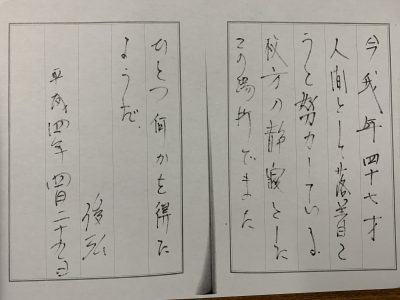 今我年四十七才
人間として落着こ
うと努力している
枚方の静寂とした
この場所でまた
ひとつ何かを得た
ようだ。
平成四年 四月二十五日